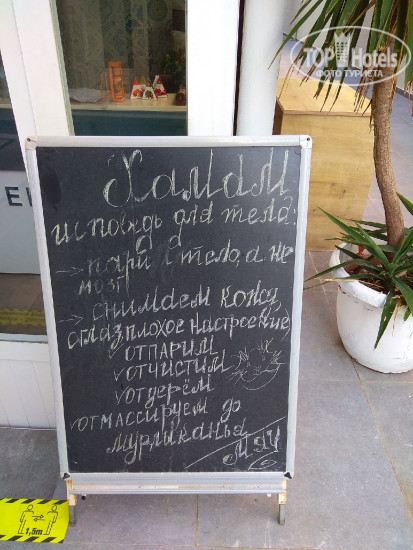 TopHotels
ФОТО ТУРИСТА
Хамам
исповедь для тела:
да
→ пари тело, а не
мозг
→ снимаем кожу,
сглаз, плохое настроение,
√ отпарим
√ отчистим
√ отдерём
отмассируем до
мурлыканья
МЯУ
1,5m